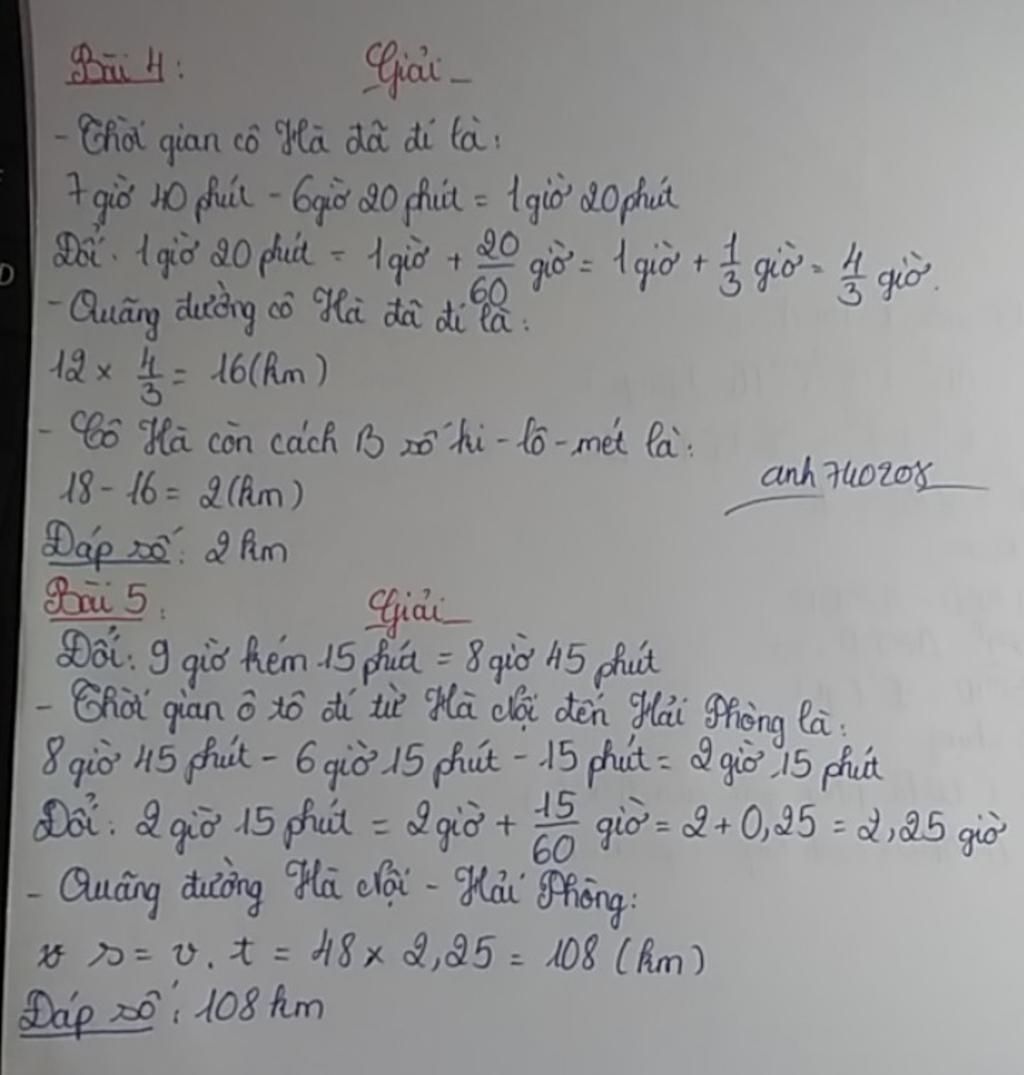 Bài 4: Giải
- Thời gian cô Hà đã đi là:
7 giờ 40 phút - 6 giờ 20 phút = 1 giờ 20 phút
Đổi: 1 giờ 20 phút = 1 giờ + 20/60 giờ = 1 giờ + 1/3 giờ = 4/3 giờ.
- Quãng đường cô Hà đã đi là:
12 × 4/3 = 16 (km)
- Cô Hà còn cách B số ki-lô-mét là:
18 - 16 = 2 (km)
anh740208
Đáp số: 2 km
Bài 5: Giải
Đổi: 9 giờ kém 15 phút = 8 giờ 45 phút
- Thời gian ô tô đi từ Hà Nội đến Hải Phòng là:
8 giờ 45 phút - 6 giờ 15 phút - 15 phút = 2 giờ 15 phút
Đổi: 2 giờ 15 phút = 2 giờ + 15/60 giờ = 2 + 0,25 = 2,25 giờ
- Quãng đường Hà Nội - Hải Phòng:
s = v . t = 48 × 2,25 = 108 (km)
Đáp số: 108 km